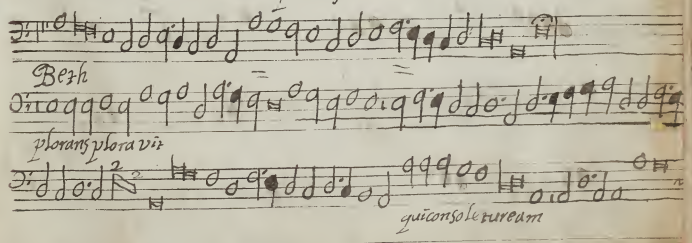 Beth
plorans plora vit
qui consoletur eam